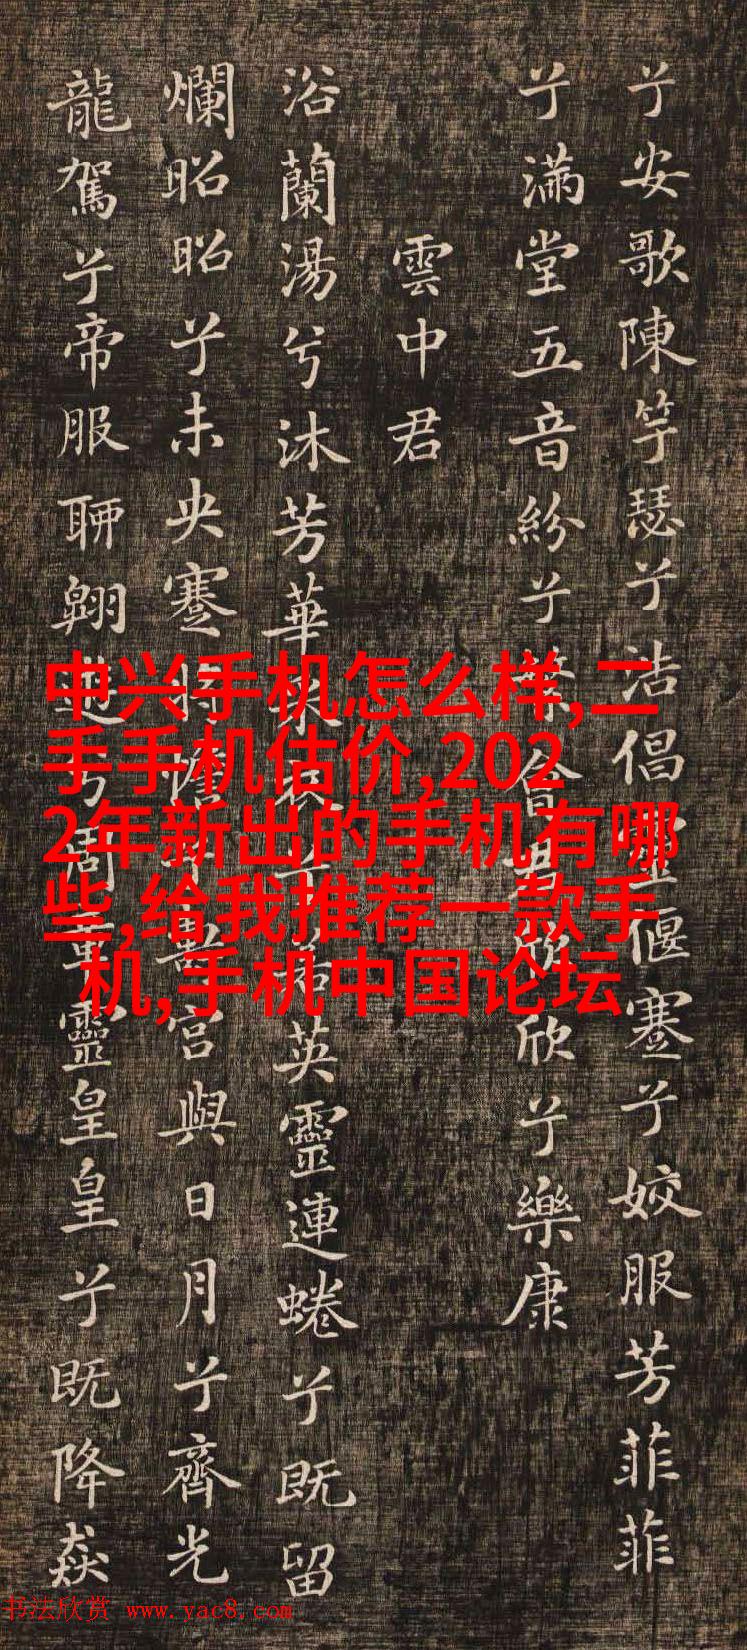 兮安歌陳竽瑟兮浩倡靈偃蹇兮姣服芳菲菲
兮滿堂五音紛兮繁會君欣欣兮樂康
雲中君
浴蘭湯兮沐芳華采衣兮若英靈連蜷兮既留
爛昭昭兮未央蹇將憺兮壽宮與日月兮齊光
龍駕兮帝服聊翱遊兮周章靈皇皇兮既降猋
中兴手机怎么样,二
手手机估价,202
2年新出的手机有哪
些,给我推荐一款手
机,手机中国论坛
书法欣赏 www.yac8.com